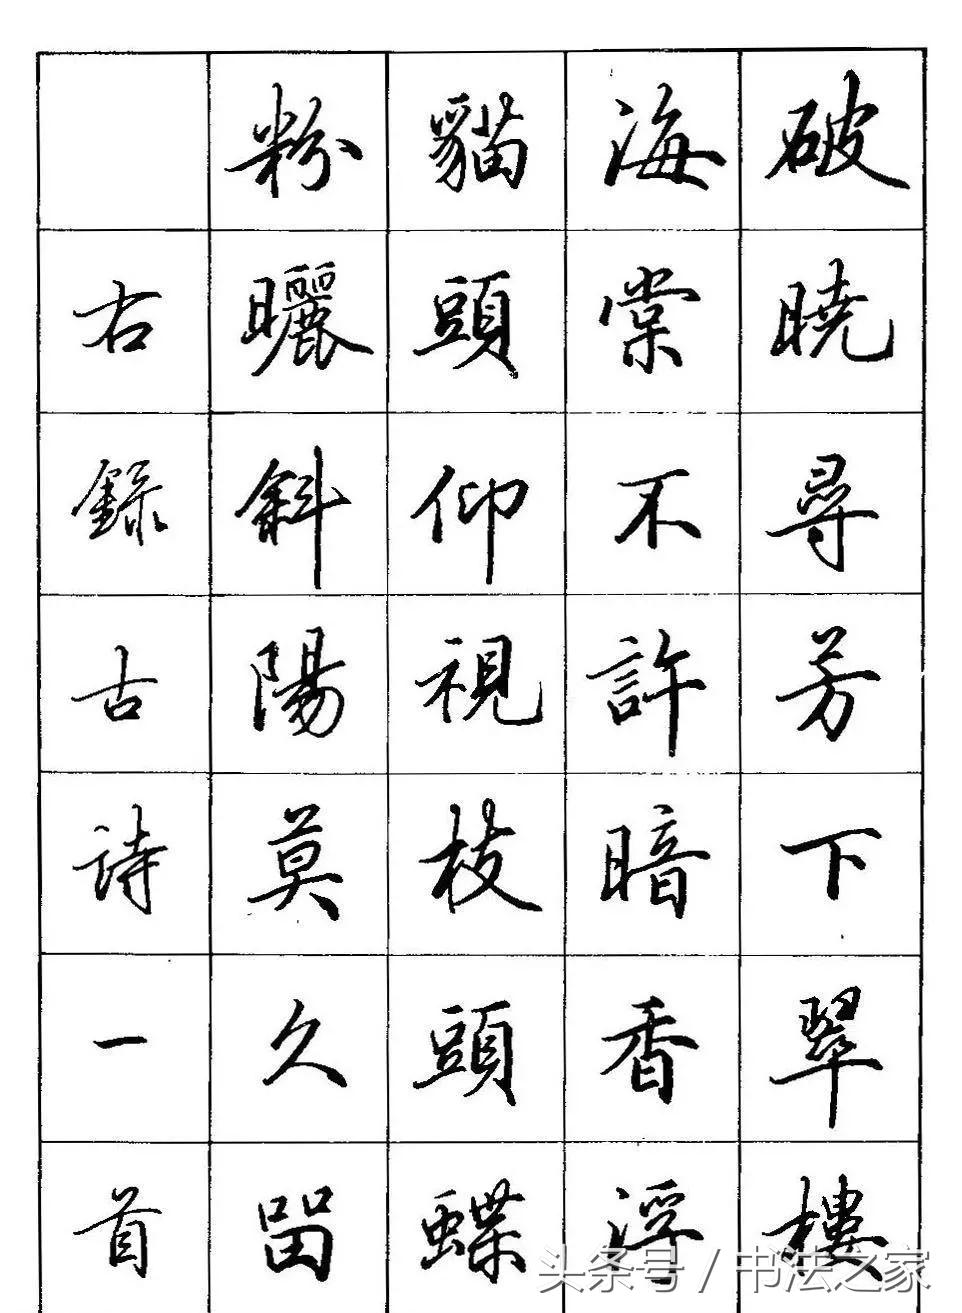 破曉尋芳下翠樓
海棠不許暗香浮
貓頭仰視枝頭蝶
粉曬斜陽莫久留
右錄古詩一首
头条号 / 书法之家